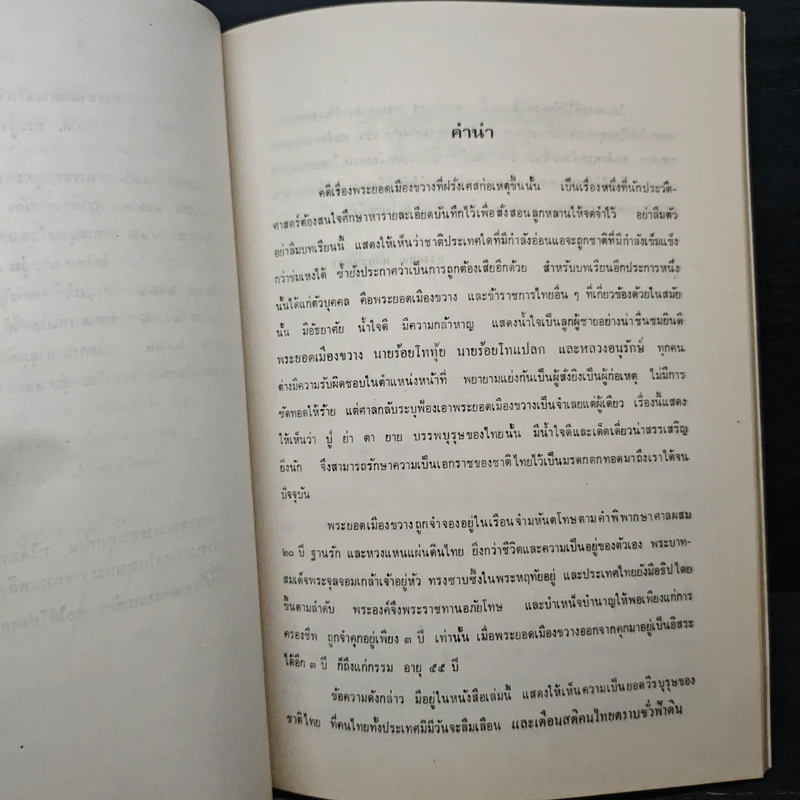 คำนำ
คดีเรื่องพระยอดเมืองขวางที่ฝรั่งเศสก่อเหตุขึ้นนั้น เป็นเรื่องหนึ่งที่นักประวัติ-
ศาสตร์ต้องสนใจศึกษาหารายละเอียดบันทึกไว้เพื่อสั่งสอนลูกหลานให้จดจำไว้ อย่าลืมตัว
อย่าลืมบทเรียนนี้ แสดงให้เห็นว่าชาติประเทศใดที่มีกำลังอ่อนแอจะถูกชาติที่มีกำลังเข้มแข็ง
กว่าข่มเหงได้ ซ้ำยังประกาศว่าเป็นการถูกต้องเสียอีกด้วย สำหรับบทเรียนอีกประการหนึ่ง
นั้นได้แก่ตัวบุคคล คือพระยอดเมืองขวาง และข้าราชการไทยอื่น ๆ ที่เกี่ยวข้องด้วยในสมัย
นั้น มีอัธยาศัย น้ำใจดี มีความกล้าหาญ แสดงน้ำใจเป็นลูกผู้ชายอย่างน่าชื่นชมยินดี
พระยอดเมืองขวาง นายร้อยโททุ้ย นายร้อยโทแปลก และหลวงอนุรักษ์ ทุกคน
ต่างมีความรับผิดชอบในตำแหน่งหน้าที่ พยายามแย่งกันเป็นผู้สั่งยิงเป็นผู้ก่อเหตุ ไม่มีการ
ซัดทอดให้ร้าย แต่ศาลกลับระบุฟ้องเอาพระยอดเมืองขวางเป็นจำเลยแต่ผู้เดียว เรื่องนี้แสดง
ให้เห็นว่า ปู่ ย่า ตา ยาย บรรพบุรุษของไทยนั้น มีน้ำใจดีและเด็ดเดี่ยวน่าสรรเสริญ
ยิ่งนัก จึงสามารถรักษาความเป็นเอกราชของชาติไทยไว้เป็นมรดกตกทอดมาถึงเราได้จน
ปัจจุบัน
พระยอดเมืองขวางถูกจำจองอยู่ในเรือนจำมหันตโทษตามคำพิพากษาศาลผสม
๒๐ ปี ฐานรัก และหวงแหนแผ่นดินไทย ยิ่งกว่าชีวิตและความเป็นอยู่ของตัวเอง พระบาท-
สมเด็จพระจุลจอมเกล้าเจ้าอยู่หัว ทรงซาบซึ้งในพระหฤทัยอยู่ และประเทศไทยยังมีอธิปไตย
ขึ้นตามลำดับ พระองค์จึงพระราชทานอภัยโทษ และบำเหน็จบำนาญให้พอเพียงแก่การ
ครองชีพ ถูกจำคุกอยู่เพียง ๓ ปี เท่านั้น เมื่อพระยอดเมืองขวางออกจากคุกมาอยู่เป็นอิสระ
ได้อีก ๓ ปี ก็ถึงแก่กรรม อายุ ๔๕ ปี
ข้อความดังกล่าว มีอยู่ในหนังสือเล่มนี้ แสดงให้เห็นความเป็นยอดวีรบุรุษของ
ชาติไทย ที่คนไทยทั้งประเทศมิมีวันจะลืมเลือน และเตือนสติคนไทยตราบชั่วฟ้าดิน